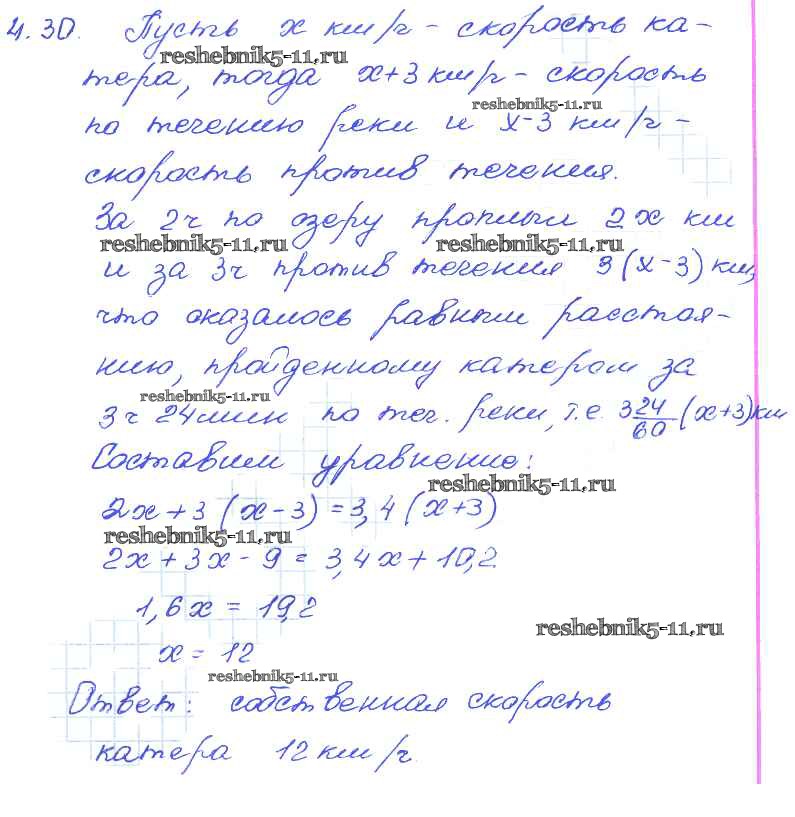 4.30. Пусть x км/ч - скорость ка-
reshebnik5-11.ru
тера, тогда x+3 км/ч - скорость
reshebnik5-11.ru
по течению реки и x-3 км/ч -
скорость против течения.
За 2ч по озеру проплыл 2x км
reshebnik5-11.ru reshebnik5-11.ru
и за 3ч против течения 3(x-3) км,
что оказалось равным расстоя-
нию, пройденному катером за
reshebnik5-11.ru
3ч 24мин по теч. реки, т.е. 3 24/60 (x+3) км
Составим уравнение:
reshebnik5-11.ru
2x+3(x-3)=3,4(x+3)
reshebnik5-11.ru
2x+3x-9=3,4x+10,2
1,6x=19,2
reshebnik5-11.ru
x=12
reshebnik5-11.ru
Ответ: собственная скорость
катера 12 км/ч.